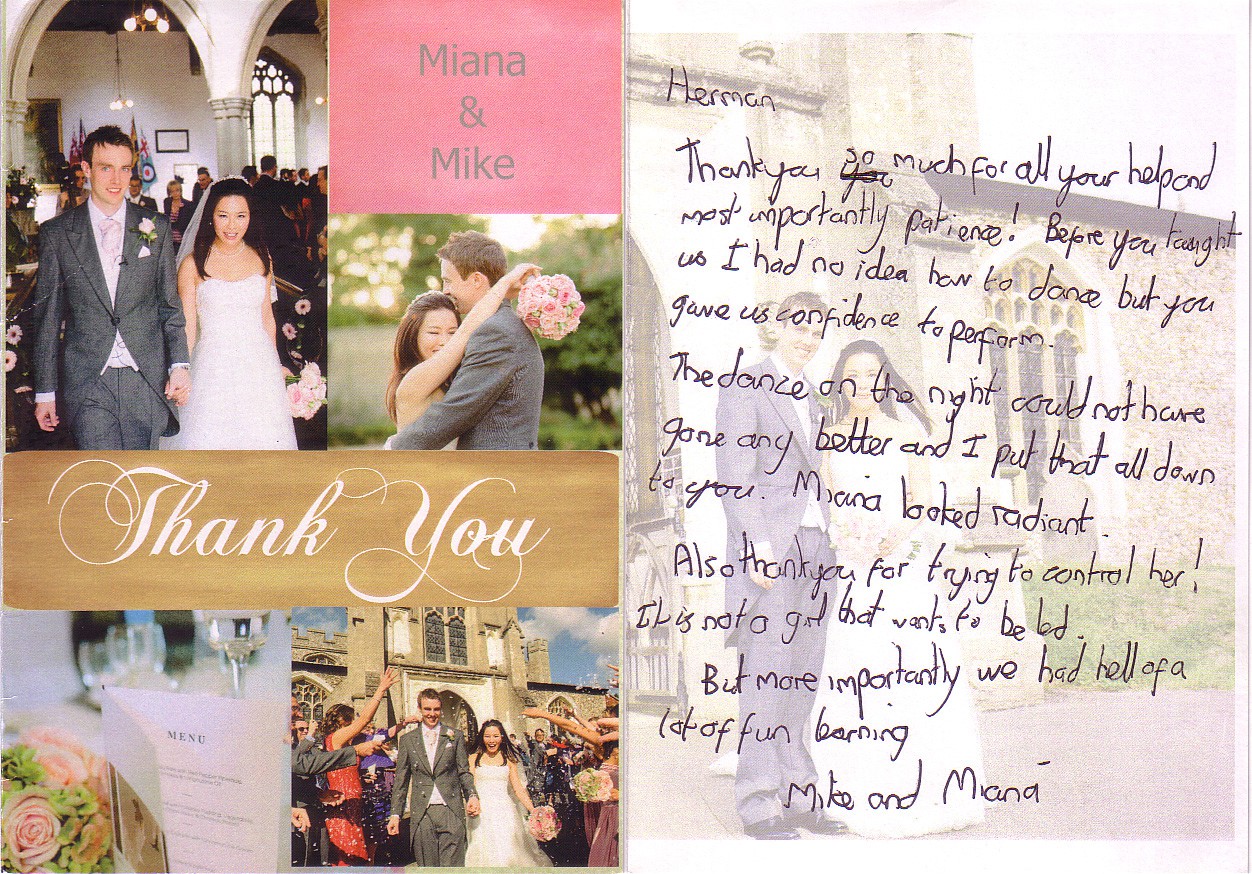 Miana
&
Mike
Thank You
MENU
Herman
Thankyou so much for all your help and
most importantly patience! Before you taught
us I had no idea how to dance but you
gave us confidence to perform.
The dance on the night could not have
gone any better and I put that all down
to you. Miana looked radiant.
Also thankyou for trying to control her!
It is not a girl that wants to be led.
But more importantly we had hell of a
lot of fun learning
Mike and Miana